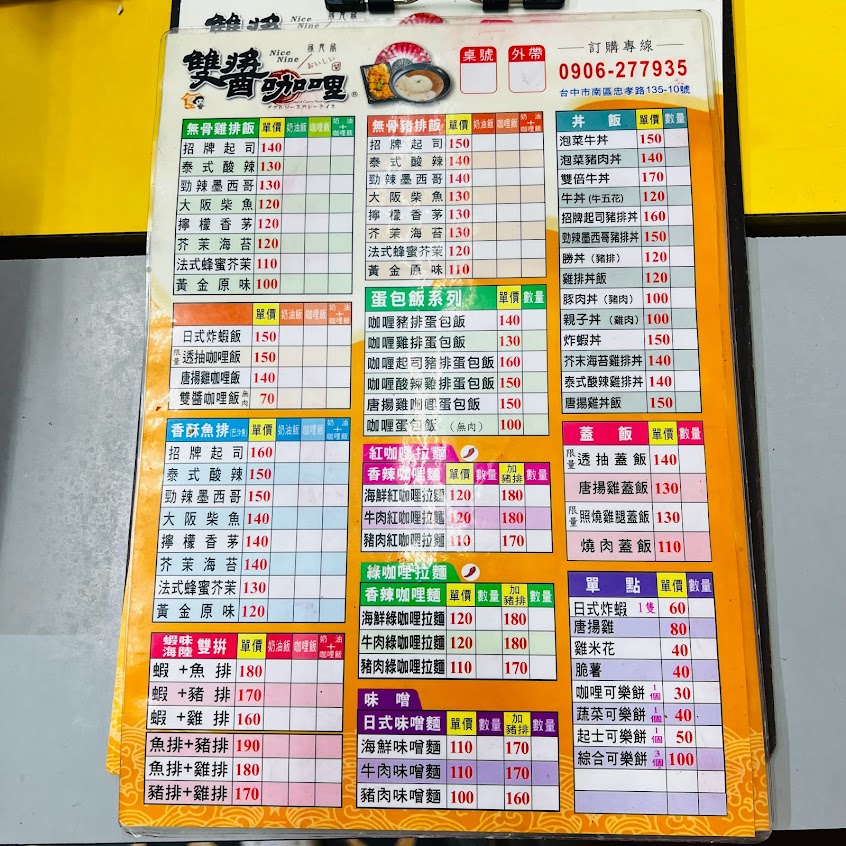 Nice Nine
おいしい
雙醬咖哩®
桌號
外帶
訂購專線
0906-277935
台中市南區忠孝路135-10號
無骨雞排飯 單價 奶油飯 咖哩飯 奶油+咖哩飯
招牌起司 140
泰式酸辣 130
勁辣墨西哥 130
大阪柴魚 120
檸檬香茅 120
芥茉海苔 120
法式蜂蜜芥茉 110
黃金原味 100
單價 奶油飯 咖哩飯 奶油+咖哩飯
日式炸蝦飯 150
限量 透抽咖哩飯 150
唐揚雞咖哩飯 140
雙醬咖哩飯 無肉 70
香酥魚排(巴沙魚) 單價 奶油飯 咖哩飯 奶油+咖哩飯
招牌起司 160
泰式酸辣 150
勁辣墨西哥 150
大阪柴魚 140
檸檬香茅 140
芥茉海苔 140
法式蜂蜜芥茉 130
黃金原味 120
蝦味海陸 雙拚 單價 奶油飯 咖哩飯 奶油+咖哩飯
蝦+魚排 180
蝦+豬排 170
蝦+雞排 160
魚排+豬排 190
魚排+雞排 180
豬排+雞排 170
無骨豬排飯 單價 奶油飯 咖哩飯 奶油+咖哩飯
招牌起司 150
泰式酸辣 140
勁辣墨西哥 140
大阪柴魚 130
檸檬香茅 130
芥茉海苔 130
法式蜂蜜芥茉 120
黃金原味 110
蛋包飯系列 單價 數量
咖喱豬排蛋包飯 140
咖喱雞排蛋包飯 130
咖喱起司豬排蛋包飯 160
咖喱酸辣雞排蛋包飯 150
唐揚雞咖喱蛋包飯 150
咖喱蛋包飯(無肉) 100
紅咖哩拉麵
香辣咖哩麵 單價 數量 加豬排 數量
海鮮紅咖哩拉麵 120 180
牛肉紅咖哩拉麵 120 180
豬肉紅咖哩拉麵 110 170
綠咖哩拉麵
香辣咖哩麵 單價 數量 加豬排 數量
海鮮綠咖哩拉麵 120 180
牛肉綠咖哩拉麵 120 180
豬肉綠咖哩拉麵 110 170
味噌
日式味噌麵 單價 數量 加豬排 數量
海鮮味噌麵 110 170
牛肉味噌麵 110 170
豬肉味噌麵 100 160
丼飯 單價 數量
泡菜牛丼 150
泡菜豬肉丼 140
雙倍牛丼 170
牛丼(牛五花) 120
招牌起司豬排丼 160
勁辣墨西哥豬排丼 150
勝丼(豬排) 120
雞排丼飯 120
豚肉丼(豬肉) 100
親子丼(雞肉) 100
炸蝦丼 150
芥末海苔雞排丼 140
泰式酸辣雞排丼 140
唐揚雞丼飯 150
蓋飯 單價 數量
限量 透抽蓋飯 140
唐揚雞蓋飯 130
限量 照燒雞腿蓋飯 130
燒肉蓋飯 110
單點 單價 數量
日式炸蝦 1隻 60
唐揚雞 80
雞米花 40
脆薯 40
咖哩可樂餅 1個 30
蔬菜可樂餅 1個 40
起士可樂餅 1個 50
綜合可樂餅 3個 100